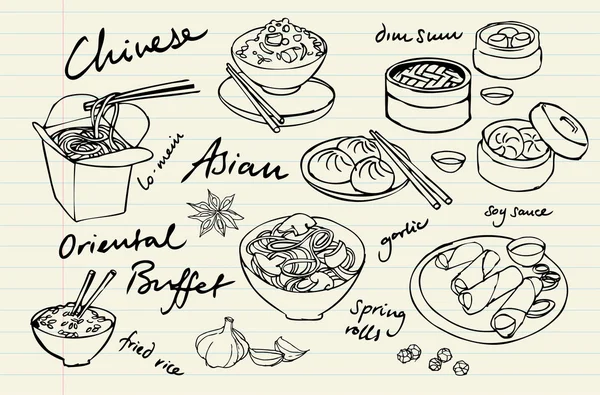 Chinese
dim sum
lo-mein
Asian
soy sauce
garlic
Oriental
Buffet
Spring
rolls
fried rice